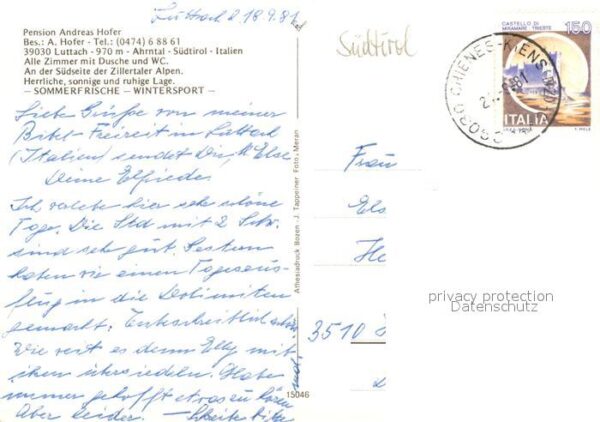 Luttach d 18.9.81
Pension Andreas Hofer
Bes.: A. Hofer - Tel.: (0474) 6 88 61
39030 Luttach - 970 m - Ahrntal - Südtirol - Italien
Alle Zimmer mit Dusche und WC.
An der Südseite der Zillertaler Alpen.
Herrliche, sonnige und ruhige Lage.
— SOMMERFRISCHE - WINTERSPORT —
Liebe Grüße von meiner
Bibel-Freizeit in Luttach
(Italien) sendet Dir, Else
Deine Elfriede
Ich hier sehr schöne
Tage. Die Std mit 2 Schw.
sind sehr gut. Gestern
haben wir einen Tagesaus-
flug in die Dolomiten
gemacht. schön
Wie es denn Elly mit
ihrem übersiedeln. Habe
immer gehofft etwas zu hören
Aber leider. — Schreibe bitte
mal,
15046
Athesiadruck Bozen - J. Tappeiner Foto, Meran
Südtirol
39030 CHIENES-KIENS (BZ)
CASTELLO DI
MIRAMARE TRIESTE
150
ITALIA
Frau
Els
He
3510
privacy protection
Datenschutz